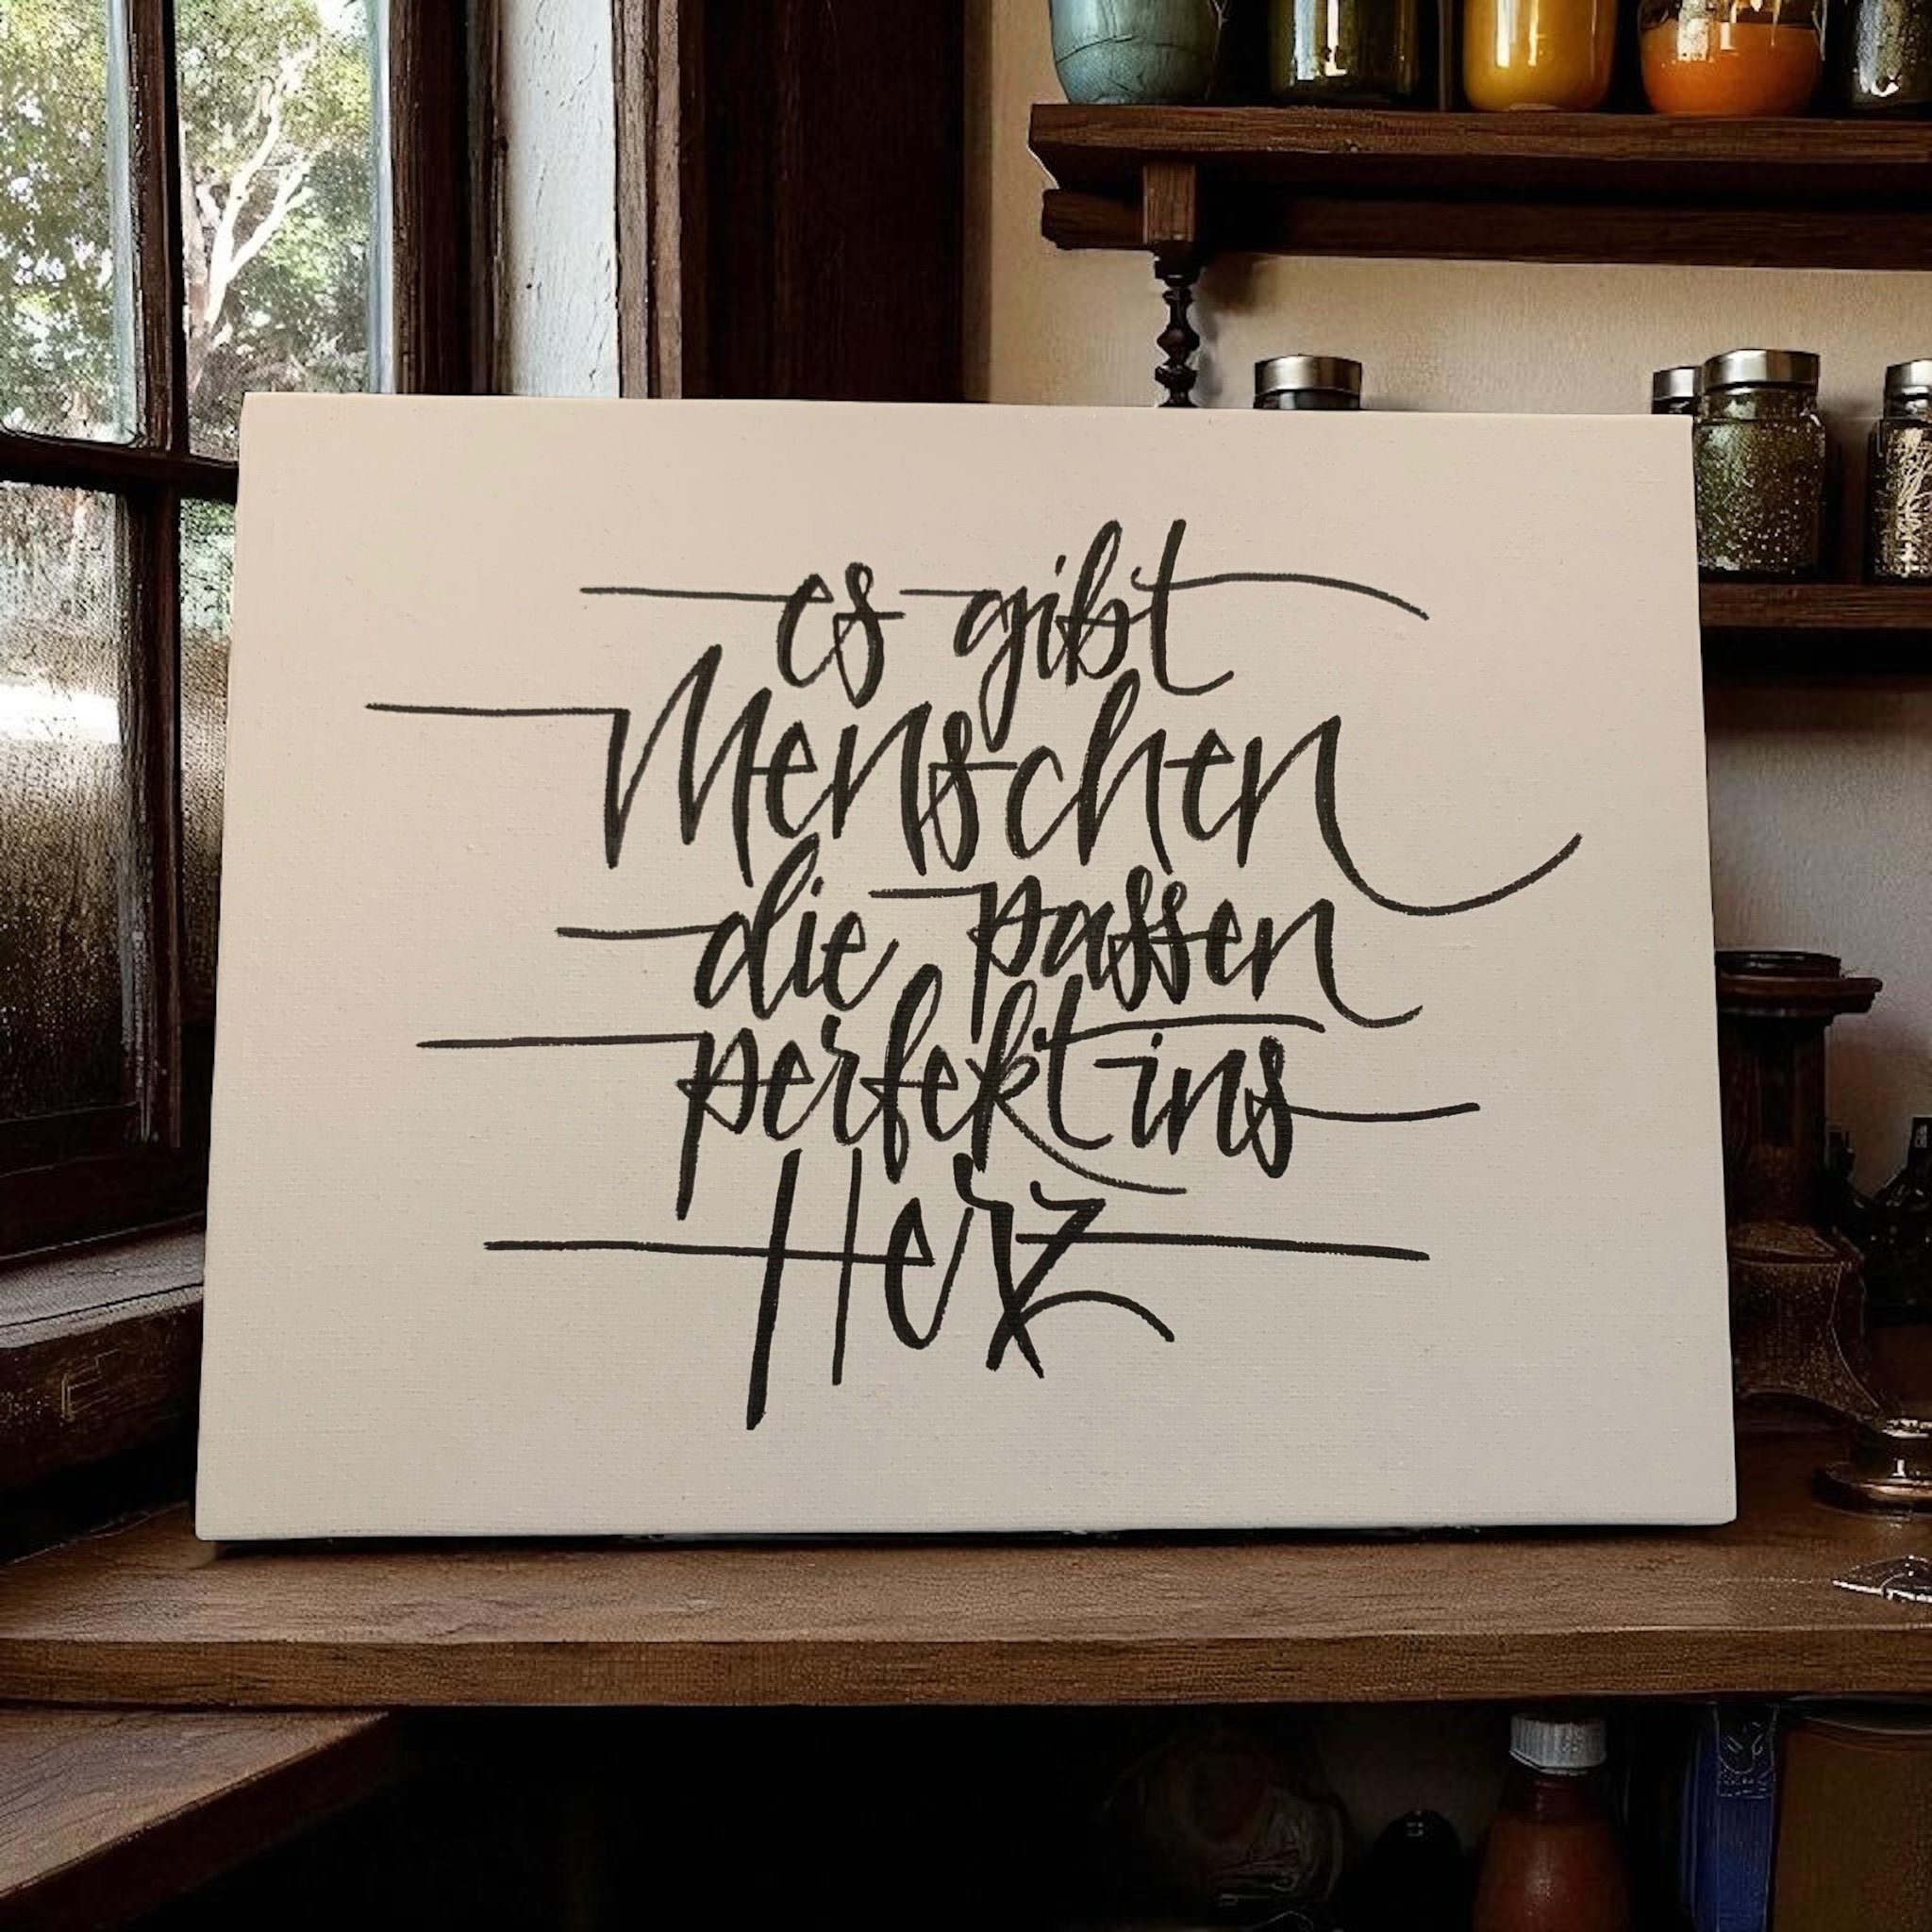 es gibt
Menschen
die passen
perfekt ins
Herz